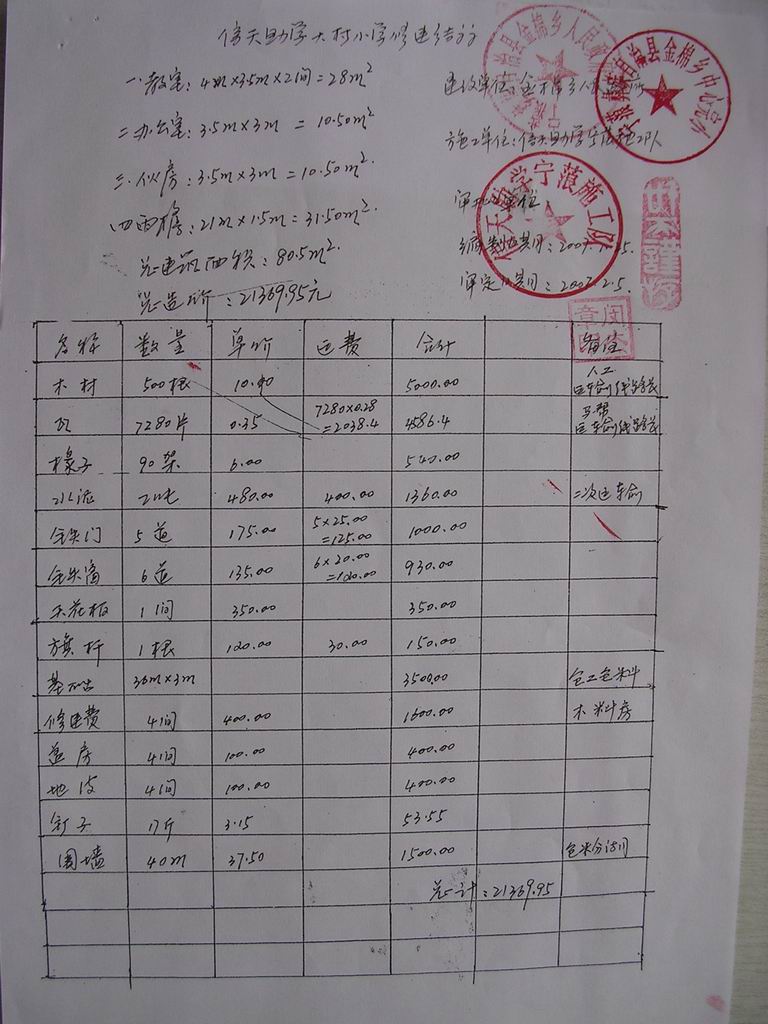 倚天助学大村小学修建结算
一.教室:4m×3.5m×2间=28m²
二.办公室:3.5m×3m=10.50m²
三.伙房:3.5m×3m=10.50m².
四.雨檐:21m×1.5m=31.50m².
总建筑面积:80.5m².
总造价:21369.95元
施工单位:倚天助学宁蒗施工队
审定日期:2007.2.5.
倚天助学宁蒗施工队
名称 数量 单价 运费 合计 备注
木材 500根 10.00 5000.00 人工
瓦 7280片 0.35 7280×0.28=2038.4 4586.4 马帮
椽子 90架 6.00 540.00
水泥 2吨 480.00 400.00 1360.00 二次运输
全铁门 5道 175.00 5×25.00=125.00 1000.00
全铁窗 6道 135.00 6×20.00=120.00 930.00
天花板 1间 350.00 350.00
旗杆 1根 120.00 30.00 150.00
基础 36m×3m 3500.00 包工包料
修建费 4间 400.00 1600.00 木料房
盖房 4间 100.00 400.00
地皮 4间 100.00 400.00
钉子 17斤 3.15 53.55
围墙 40m 37.50 1500.00
总计:21369.95